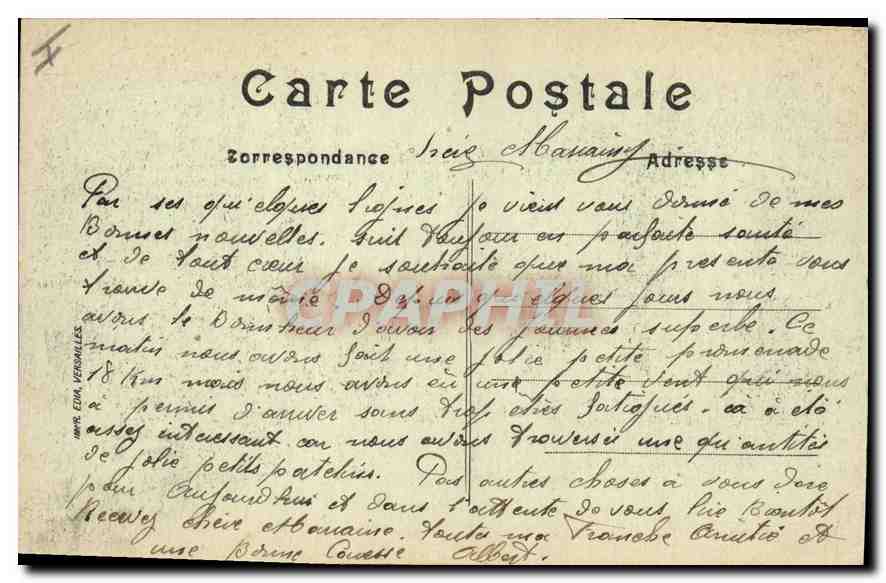 Carte Postale
Correspondance
Adresse
Par ses qu'elques lignes je viens vous donné de mes
Bonnes nouvelles. suit toujour en parfaite santé
et de tout cœur je souhaite que ma presente vous
trouve de même. Depuis quelques jours nous
avons le Bonnheur d'avoir des journes superbe. Ce
matin nous avons fait une jolie petite promenade
18 Km mais nous avons eu une petite vent qui nous
à permis d'arriver sans trop êtres fatigués. ca à été
assez interessant car nous avons traversés une qu'antités
de jolie petits patelins. Pas autres choses à vous dire
pour aujourd'hui et dans l'attente de vous lire Bientôt
Recevez chère Marraine. toutes ma Franche Amitié et
une Bonne Caresse Albert.
IMPR. EDIA, VERSAILLES
CPAPHIL